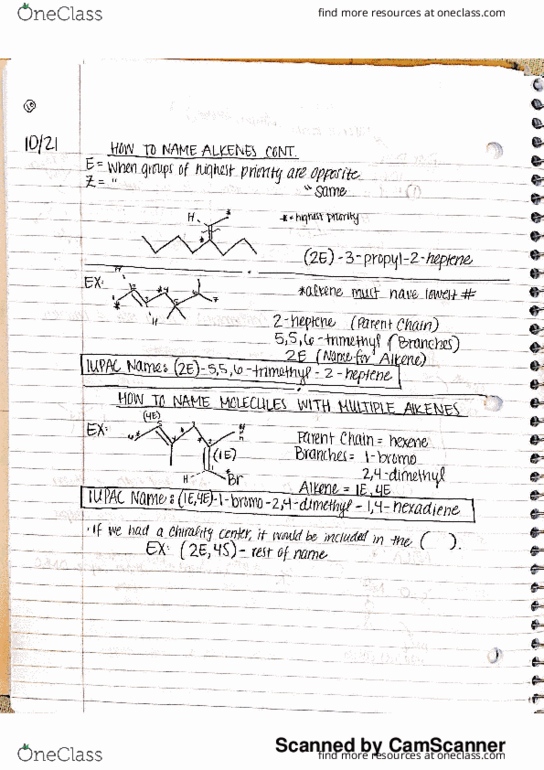 OneClass
find more resources at oneclass.com
10/21
HOW TO NAME ALKENES CONT.
E = When groups of highest priority are opposite
Z = " " same
H
* = highest priority
(2E)-3-propyl-2-heptene
EX:
*alkene must have lowest #
H
2-heptene (Parent Chain)
5,5,6-trimethyl (Branches)
2E (Name for Alkene)
IUPAC Name: (2E)-5,5,6-trimethyl-2-heptene
HOW TO NAME MOLECULES WITH MULTIPLE ALKENES
(4E)
EX:
(1E)
H Br
Parent Chain = hexene
Branches = 1-bromo
2,4-dimethyl
Alkene = 1E, 4E
IUPAC Name: (1E,4E)-1-bromo-2,4-dimethyl-1,4-hexadiene
· If we had a chirality center, it would be included in the ( ).
EX: (2E,4S)- rest of name
Scanned by CamScanner
OneClass
find more resources at oneclass.com